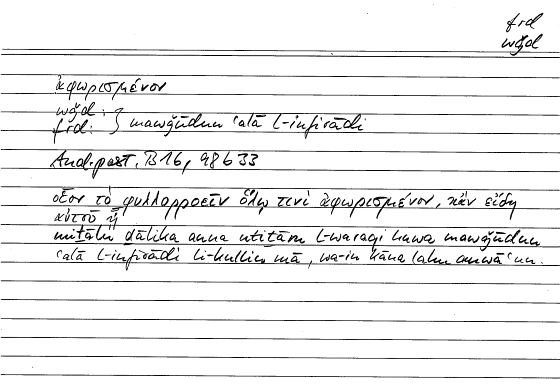 frd
wǧd
ἀφωρισμένον
wǧd:
frd: } mawǧūdun ʿalā l-infirādi
And.post. B 16, 98 b 33
οἷον τὸ φυλλορροεῖν ὅλῳ τινὶ ἀφωρισμένον, κἂν εἴδη
αὐτοῦ ᾖ
miṯālu ḏālika anna ntiṯāra l-waraqi huwa mawǧūdun
ʿalā l-infirādi li-kullin mā, wa-in kāna lahu anwāʿun.